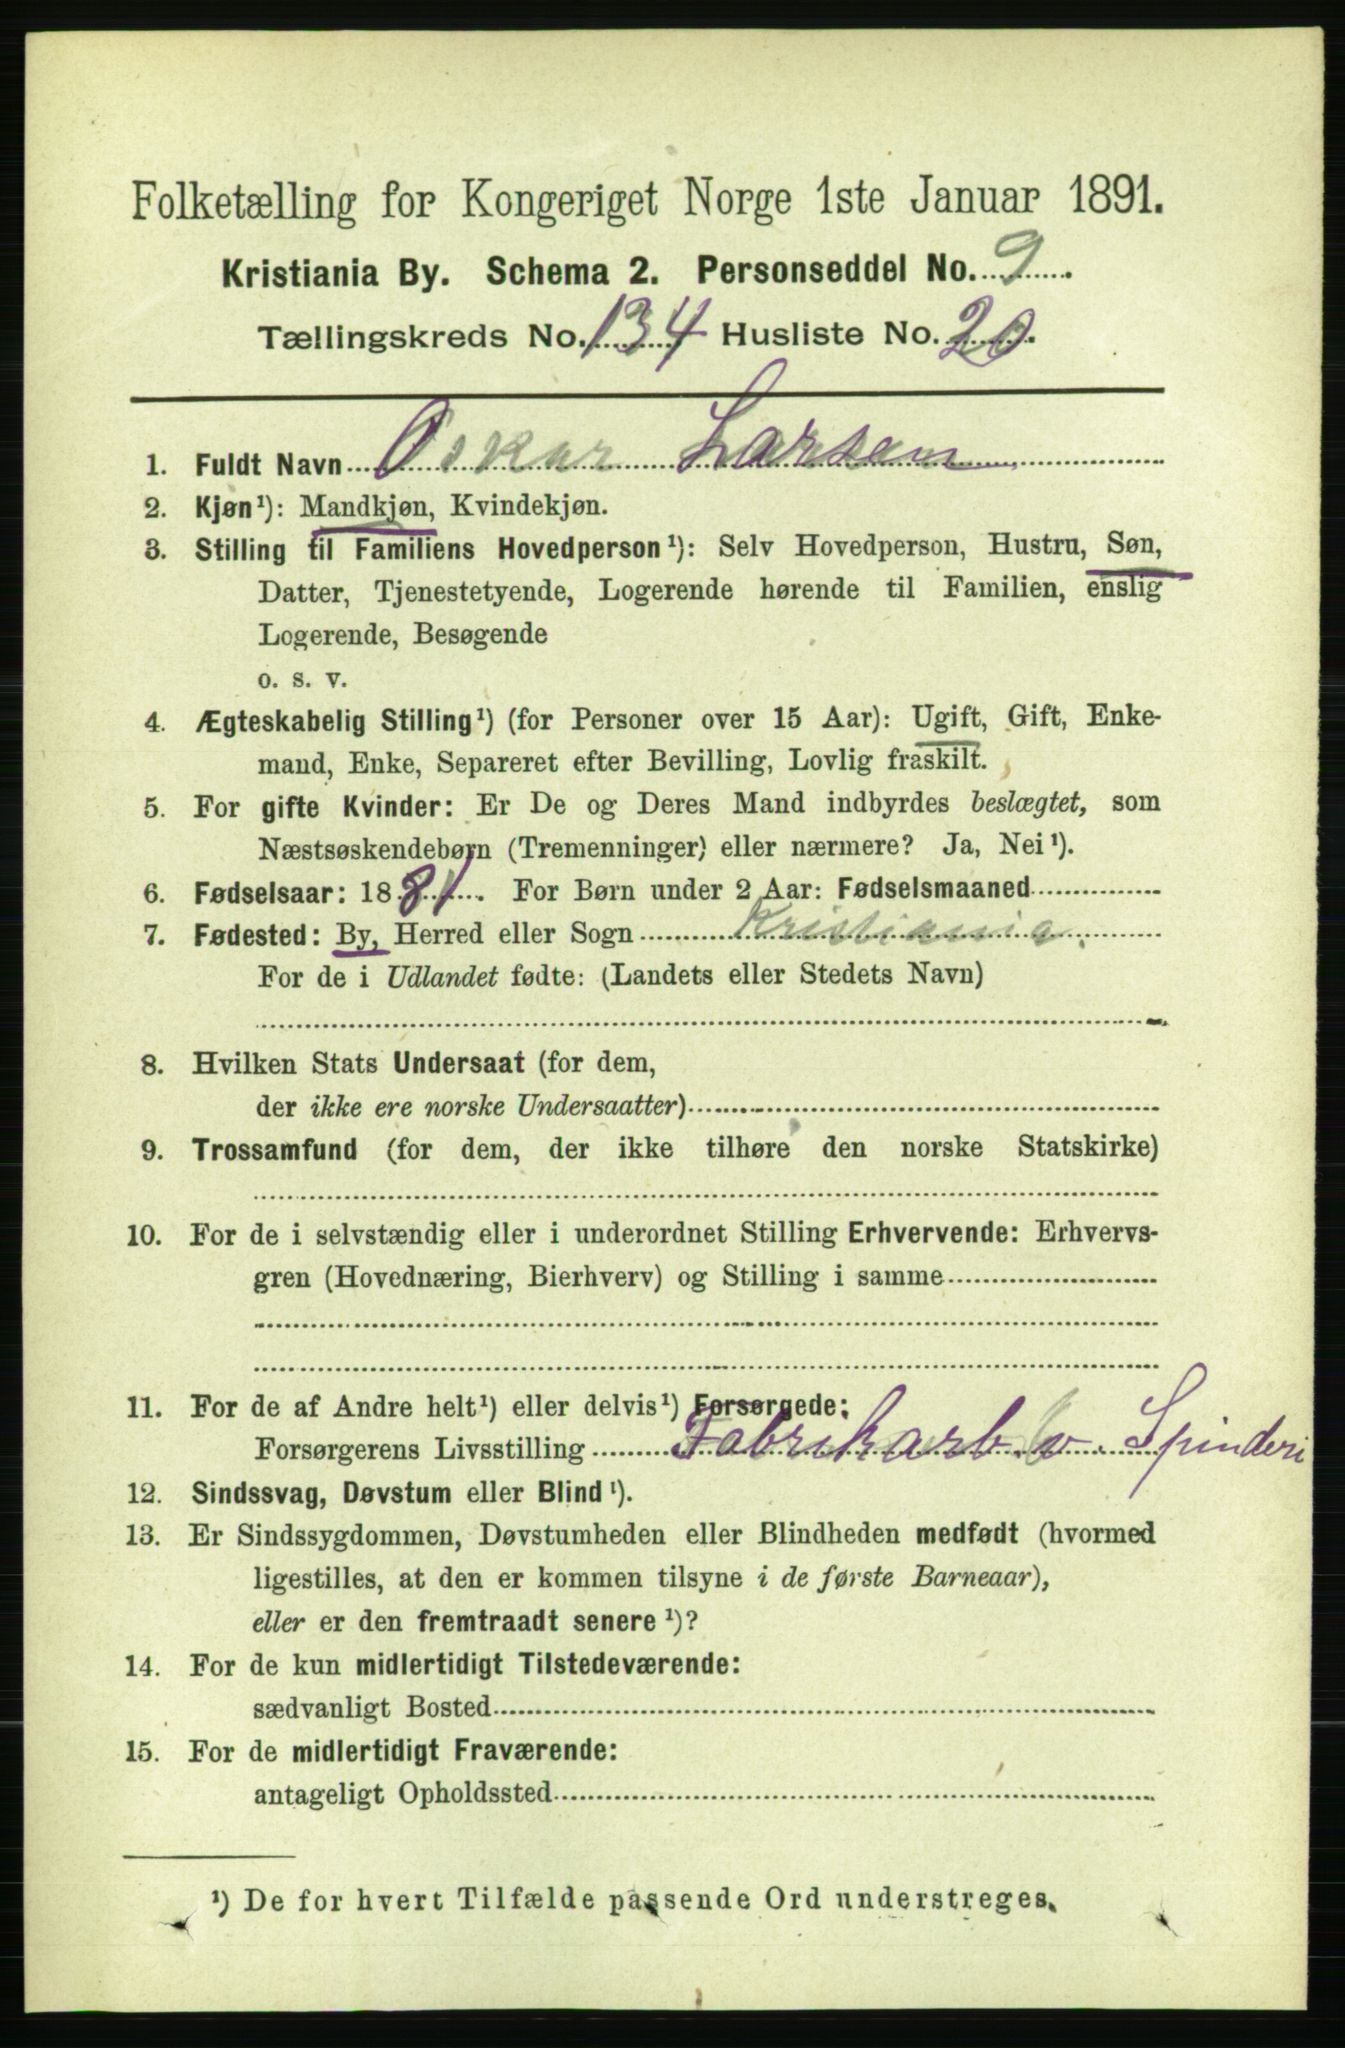 Folketælling for Kongeriget Norge 1ste Januar 1891.
Kristiania By. Schema 2. Personseddel No. 9.
Tællingskreds No. 134 Husliste No. 20.
1. Fuldt Navn Oskar Larsen
2. Kjøn¹): Mandkjøn, Kvindekjøn.
3. Stilling til Familiens Hovedperson¹): Selv Hovedperson, Hustru, Søn,
Datter, Tjenestetyende, Logerende hørende til Familien, enslig
Logerende, Besøgende
o. s. v.
4. Ægteskabelig Stilling¹) (for Personer over 15 Aar): Ugift, Gift, Enke-
mand, Enke, Separeret efter Bevilling, Lovlig fraskilt.
5. For gifte Kvinder: Er De og Deres Mand indbyrdes beslægtet, som
Næstsøskendebørn (Tremenninger) eller nærmere? Ja, Nei¹).
6. Fødselsaar: 1881. For Børn under 2 Aar: Fødselsmaaned
7. Fødested: By, Herred eller Sogn Kristiania.
For de i Udlandet fødte: (Landets eller Stedets Navn)
8. Hvilken Stats Undersaat (for dem,
der ikke ere norske Undersaatter)
9. Trossamfund (for dem, der ikke tilhøre den norske Statskirke)
10. For de i selvstændig eller i underordnet Stilling Erhvervende: Erhvervs-
gren (Hovednæring, Bierhverv) og Stilling i samme
11. For de af Andre helt¹) eller delvis¹) Forsørgede:
Forsørgerens Livsstilling Fabrikarb. v. Spinderi
12. Sindssvag, Døvstum eller Blind¹).
13. Er Sindssygdommen, Døvstumheden eller Blindheden medfødt (hvormed
ligestilles, at den er kommen tilsyne i de første Barneaar),
eller er den fremtraadt senere¹)?
14. For de kun midlertidigt Tilstedeværende:
sædvanligt Bosted
15. For de midlertidigt Fraværende:
antageligt Opholdssted
¹) De for hvert Tilfælde passende Ord understreges.